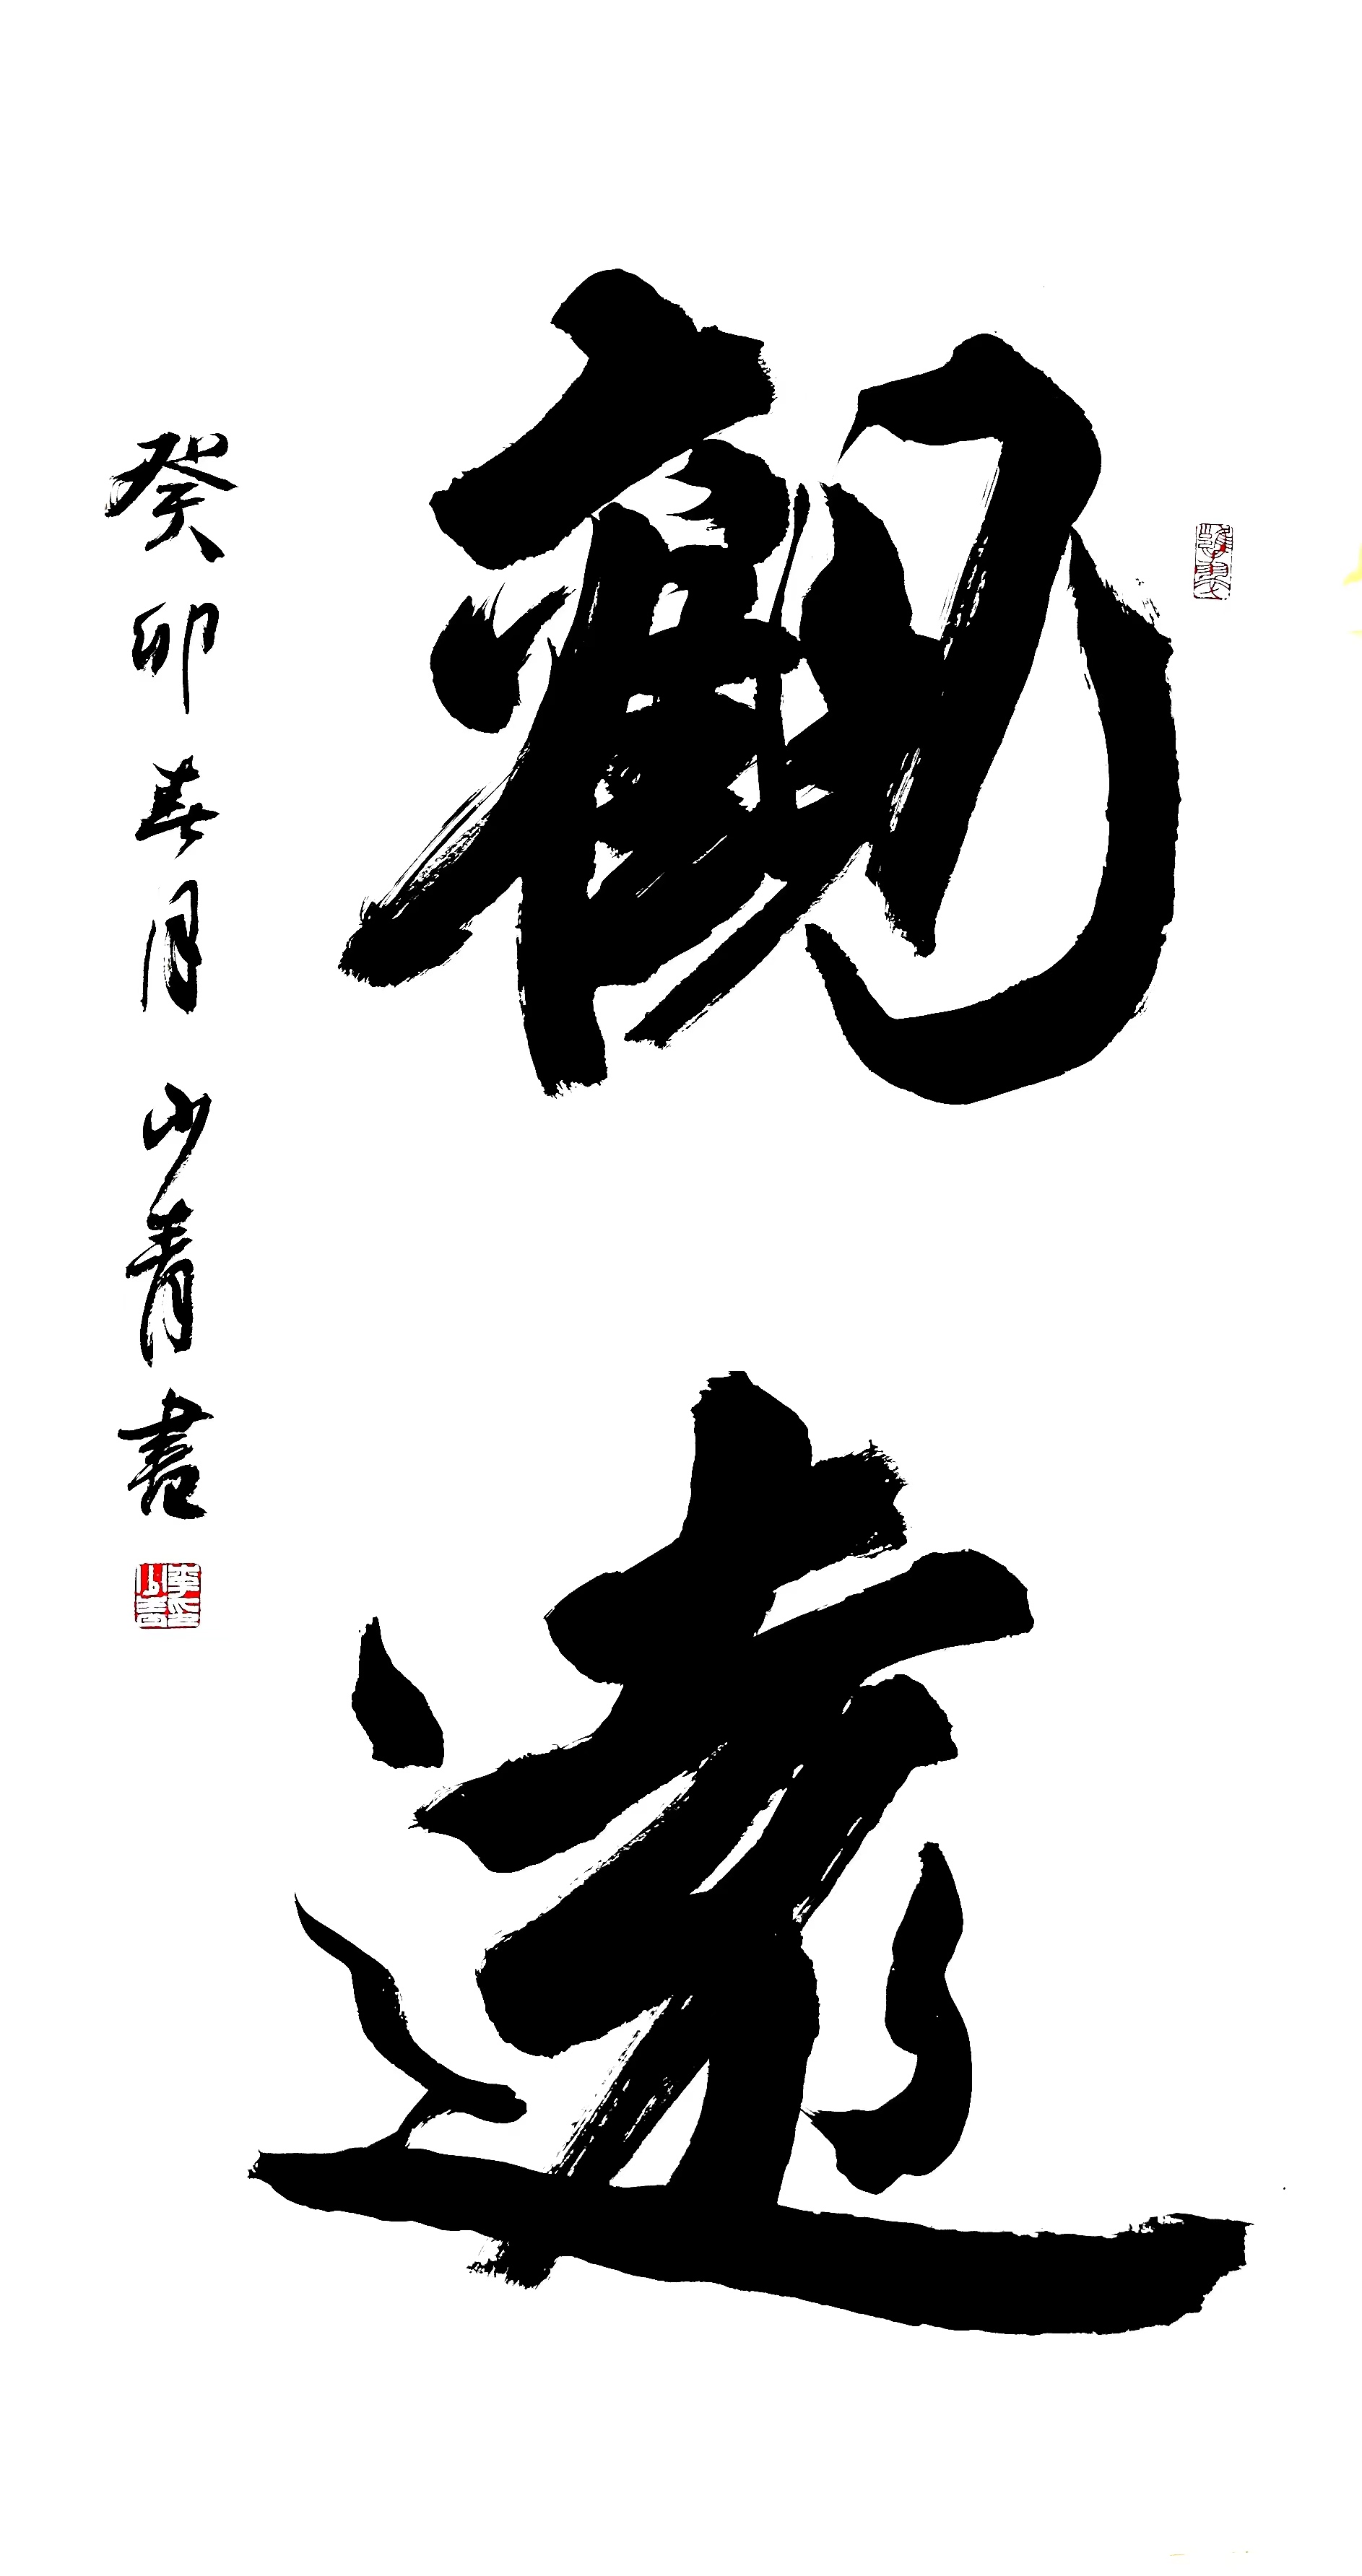 觀遠
癸卯春月 少青書